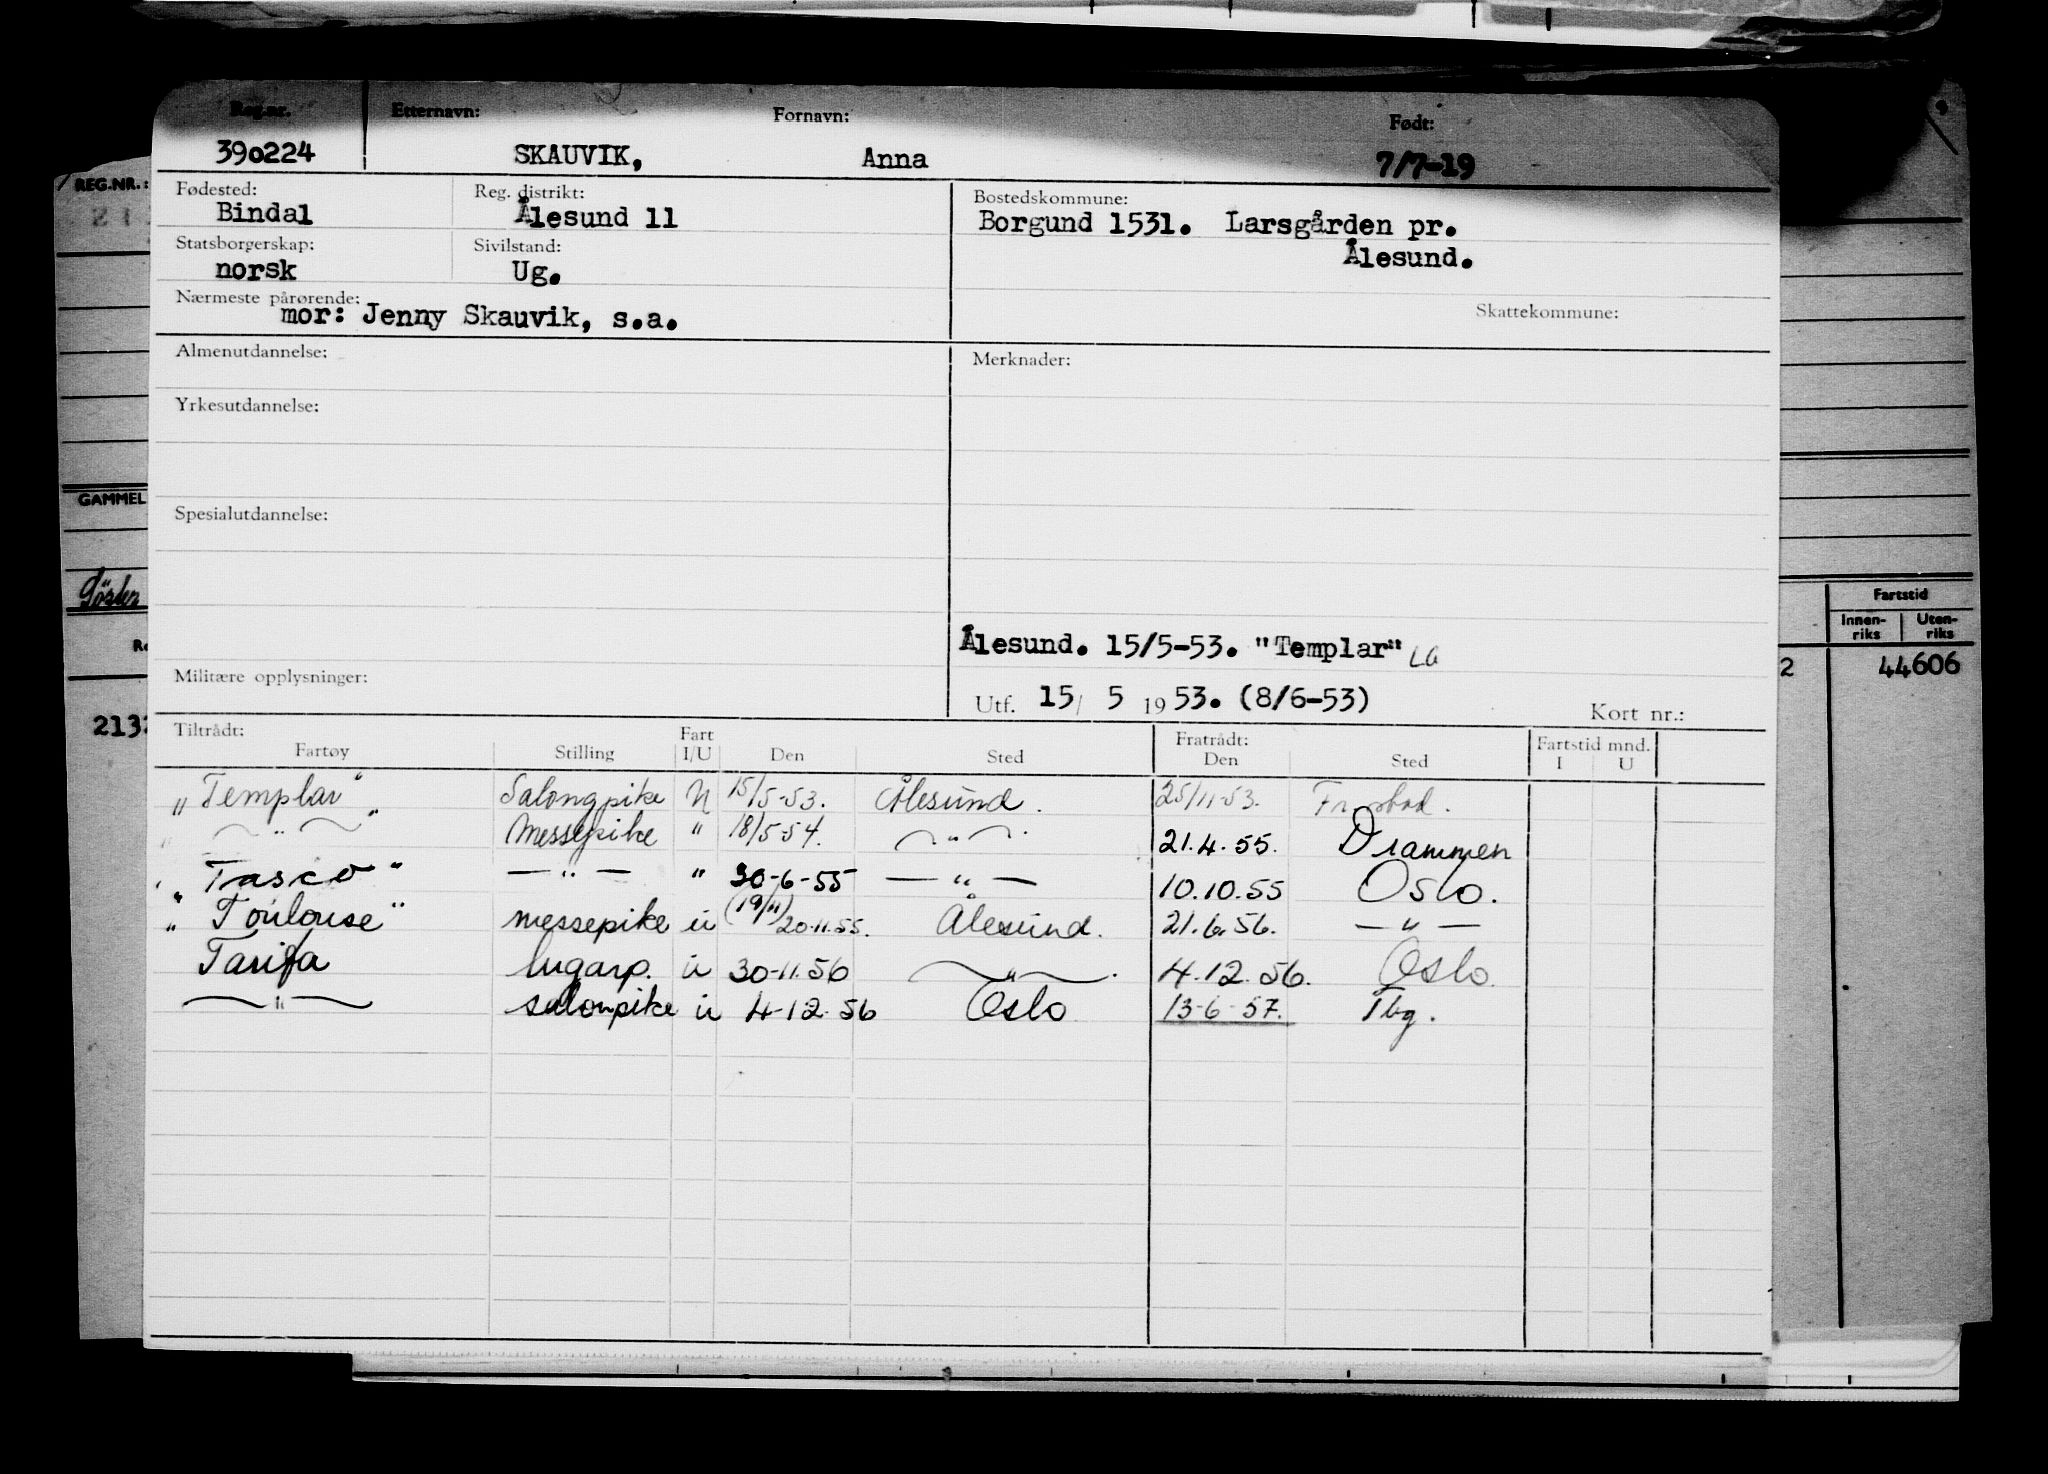 Reg.nr. Etternavn: Fornavn: Født:
390224 SKAUVIK, Anna 7/7-19
Fødested: Reg. distrikt: Bostedskommune:
Bindal Ålesund 11 Borgund 1531. Larsgården pr.
Statsborgerskap: Sivilstand: Ålesund.
norsk Ug.
Nærmeste pårørende: Skattekommune:
mor: Jenny Skauvik, s.a.
Almenutdannelse: Merknader:
Yrkesutdannelse:
Spesialutdannelse:
Ålesund. 15/5-53. "Templar" LG
Militære opplysninger:
Utf. 15/ 5 1953. (8/6-53) Kort nr.:
Tiltrådt: Fart Fratrådt: Fartstid mnd.
Fartøy Stilling I/U Den Sted Den Sted I U
"Templar" Salongpike U 15/5-53. Ålesund. 25/11-53.
— " — Messepike " 18/5-54. — " — 21.4.55. Drammen
"Tasco" — " — " 30-6-55 — " — 10.10.55 Oslo.
"Toulouse" messepike u (19/11) 20.11.55. Ålesund. 21.6.56. — " —
Tarifa lugarp. u 30-11.56 — " — 4.12.56. Oslo
— " — salonpike u 4-12-56 Oslo 13-6-57. Tbg.
REG.NR.:
GAMMEL
2132
Fartstid
Innen-riks Uten-riks
2 44606